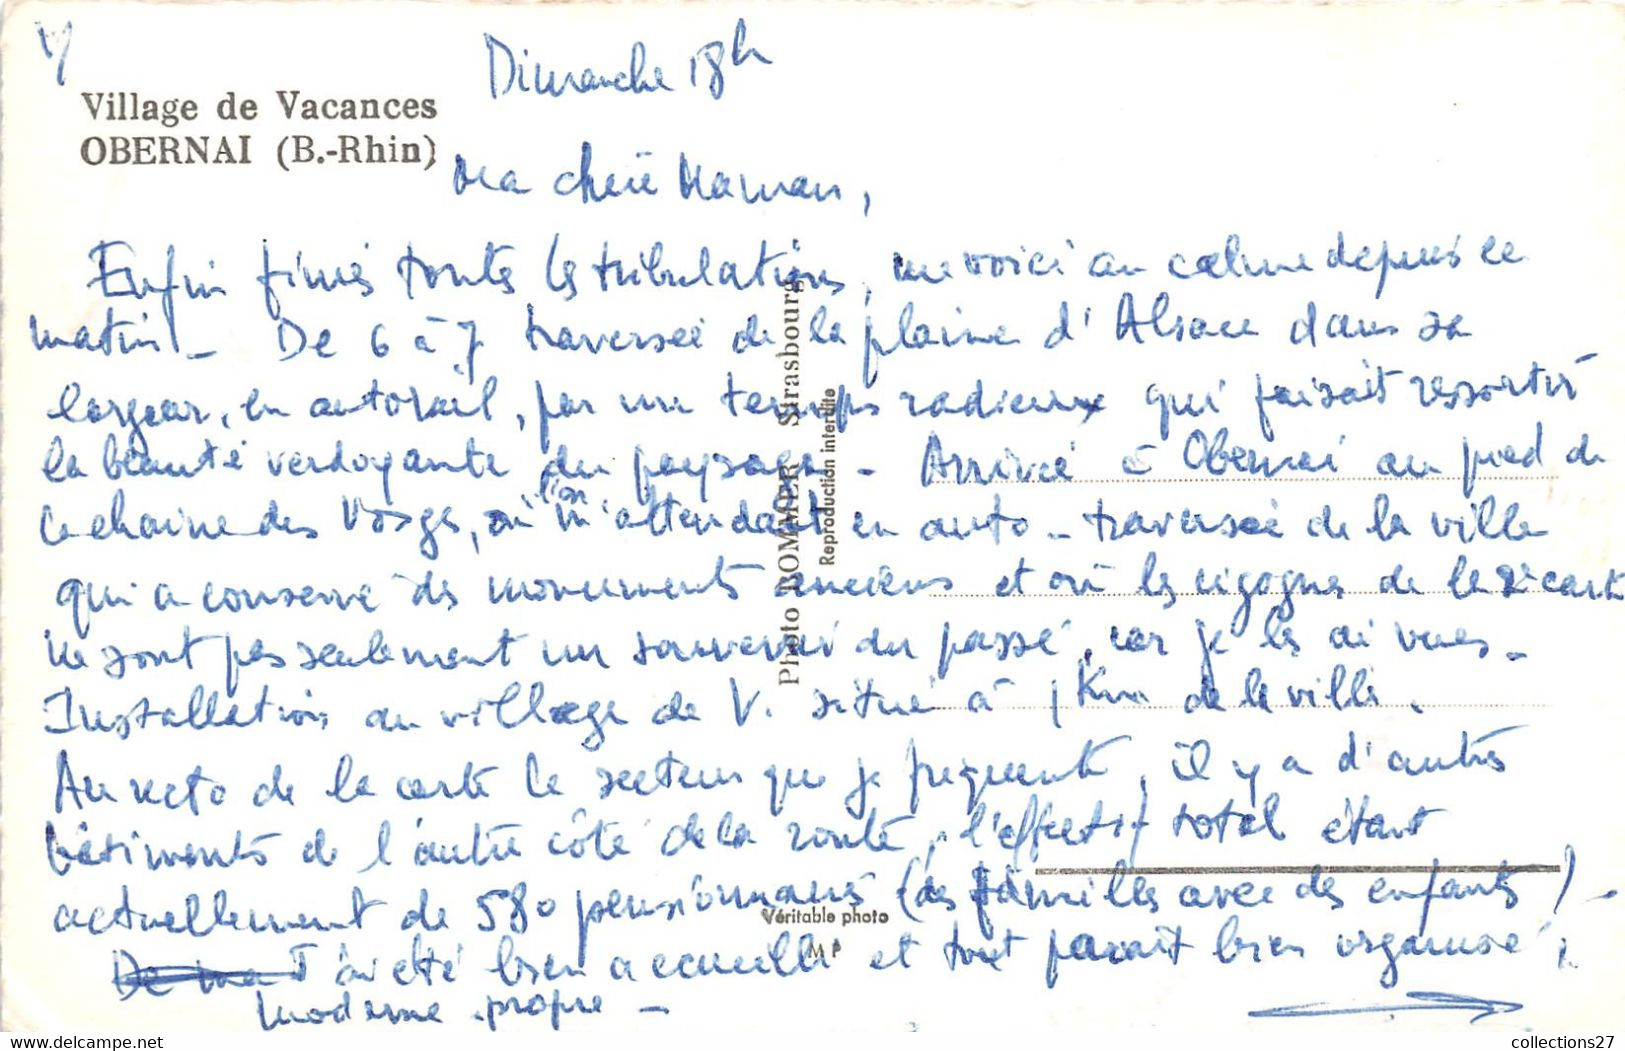 1/
Dimanche 18h
Village de Vacances
OBERNAI (B.-Rhin)
Ma chère Maman,
Enfin finies toutes les tribulations, me voici au calme depuis ce
matin - De 6 à 7 traversée de la plaine d'Alsace dans sa
largeur, en autorail, par un temps radieux qui faisait ressortir
la beauté verdoyante du paysage - Arrivée à Obernai au pied de
la chaîne des Vosges, où l'on m'attendait en auto - traversée de la ville
qui a conservé des monuments anciens et où les cigognes de la 2e carte
ne sont pas seulement un souvenir du passé, car je les ai vues -
Installation au village de V. situé à 1 Km de la ville.
Au recto de la carte le secteur que je fréquente, il y a d'autres
bâtiments de l'autre côté de la route, l'effectif total étant
actuellement de 580 pensionnaires (des familles avec des enfants) -
J'ai été bien accueillie et tout paraît bien organisé,
moderne, propre -
Photo BOMMER Strasbourg
Reproduction interdite
Véritable photo
collections27